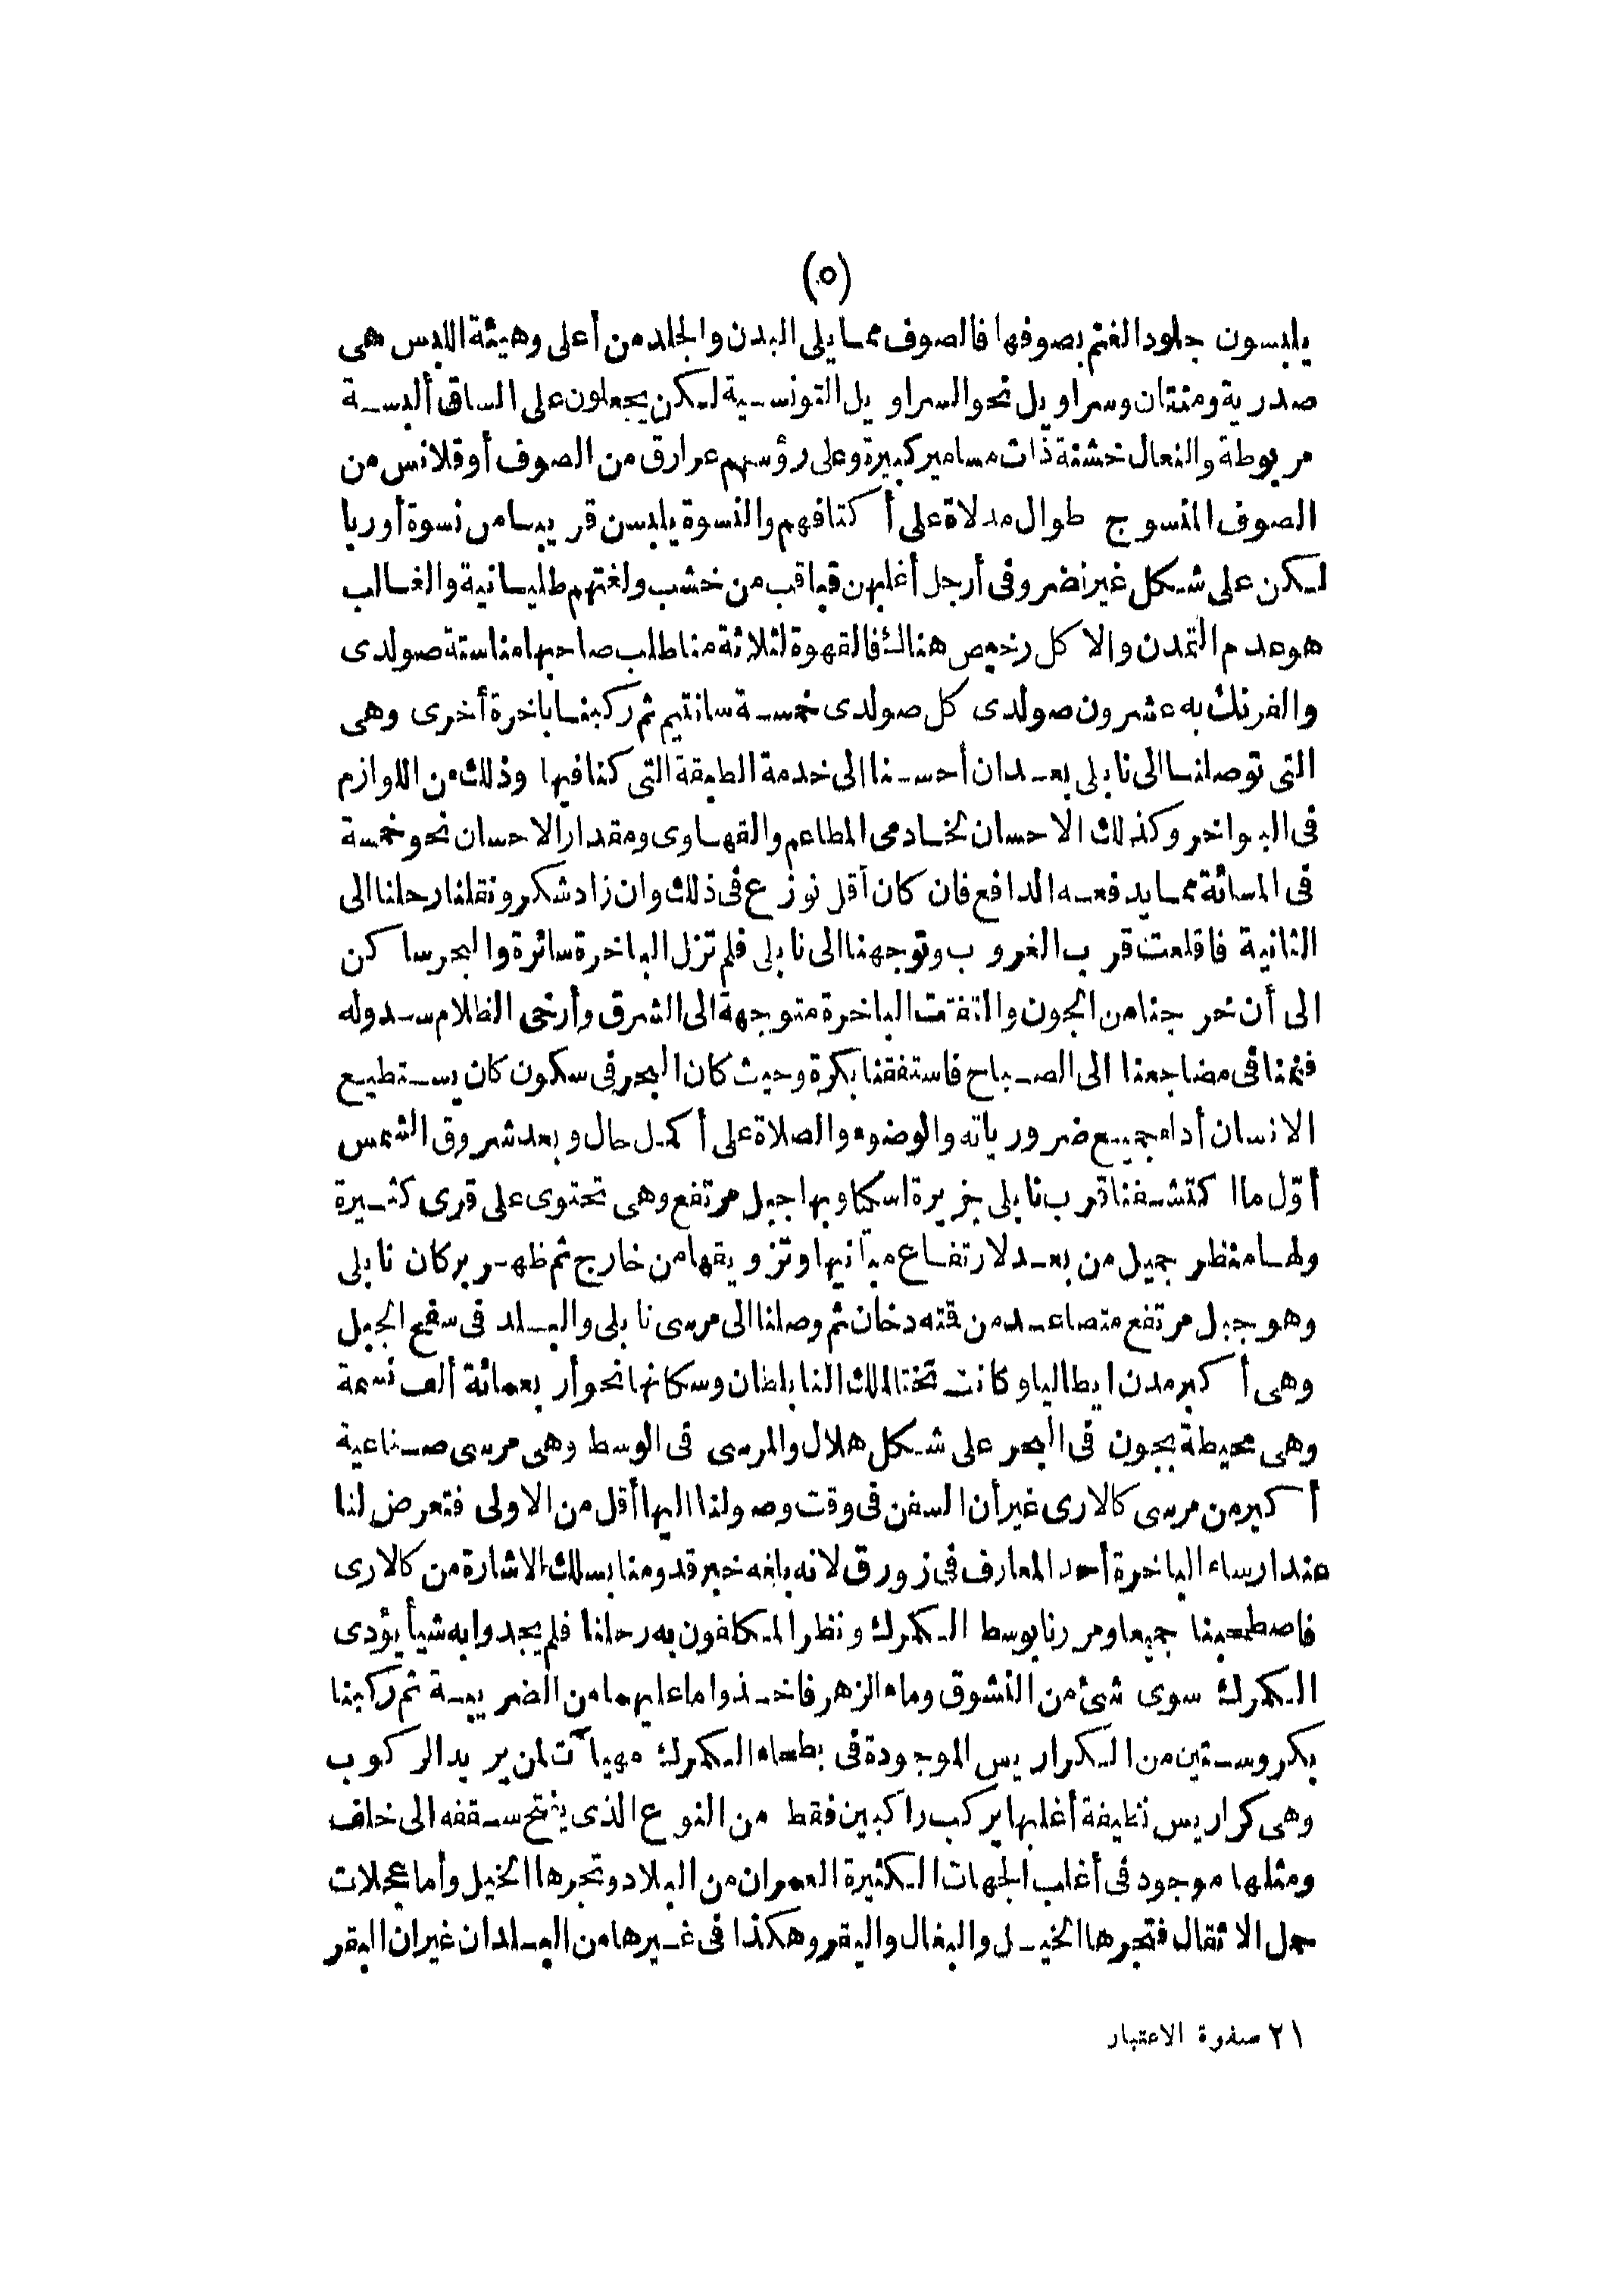 (٥)
يلبسون جلود الغنم بصوفها فالصوف مما يلى البدن والجلد من أعلى وهيئة اللبس هى
صدرية ومنتان وسراويل نحو السراويل التونسية لكن يجعلون على الساق ألبسة
مربوطة والنعال خشنة ذات مسامير كبيرة وعلى رؤسهم عرارق من الصوف أو قلانس من
الصوف المنسوج طوال مدلاة على أكتافهم والنسوة يلبسن قريبا من نسوة أوربا
لكن على شكل غير نضر وفى أرجل أغلبهن قباقب من خشب ولغتهم طليانية والغالب
هو عدم التمدن والاكل رخيص هناك فالقهوة لثلاثة منا طلب صاحبها منا ستة صولدى
والفرنك به عشرون صولدى كل صولدى خمسة سانتيم ثم ركبنا باخرة أخرى وهى
التى توصلنا الى نابلى بعد ان أحسنا الى خدمة الطبقة التى كنا فيها وذلك من اللوازم
فى البواخر وكذلك الاحسان لخادمى المطاعم والقهاوى ومقدار الاحسان نحو خمسة
فى المائة مما يدفعه الدافع فان كان أقل نوزع فى ذلك وان زاد شكر ونقلنا رحلنا الى
الثانية فاقلعت قرب الغروب وتوجهنا الى نابلى فلم تزل الباخرة سائرة والبحر ساكن
الى أن خرجنا من الجون والتفتت الباخرة متوجهة الى الشرق وأرخى الظلام سدوله
فنمنا فى مضاجعنا الى الصباح فاستفقنا بكرة وحيث كان البحر فى سكون كان يستطيع
الانسان أداء جميع ضرورياته والوضوء والصلاة على أكمل حال وبعد شروق الشمس
أوّل ما اكتشفنا قرب نابلى بجزيرة اسكيا وبها جبل مرتفع وهى تحتوى على قرى كثيرة
ولها منظر جميل من بعد لارتفاع مبآنيها وتزويقها من خارج ثم ظهر بركان نابلى
وهو جبل مرتفع متصاعد من قمته دخان ثم وصلنا الى مرسى نابلى والبلد فى سفح الجبل
وهى أكبر مدن ايطاليا وكانت تختا لملك النابلطان وسكانها نحو أربعمائة ألف نسمة
وهى محيطة بجون فى البحر على شكل هلال والمرسى فى الوسط وهى مرسى صناعية
أكبر من مرسى كالارى غير أن السفن فى وقت وصولنا اليها أقل من الاولى فتعرض لنا
عند ارساء الباخرة أحد المعارف فى زورق لانه بلغه خبر قدومنا بسلك الاشارة من كالارى
فاصطحبنا جميعا ومررنا بوسط الكمرك ونظر المكلفون به رحلنا فلم يجدوا به شيأ يؤدى
الكمرك سوى شئ من النشوق وماء الزهر فاخذوا ما عليهما من الضريبة ثم ركبنا
بكروستين من الكراريس الموجودة فى بطحاء الكمرك مهيآت لمن يريد الركوب
وهى كراريس نظيفة أغلبها يركب راكبين فقط من النوع الذى يفتح سقفه الى خلف
ومثلها موجود فى أغلب الجهات الكثيرة العمران من البلاد وتجرها الخيل وأما عجلات
حمل الاثقال فتجرها الخيل والبغال والبقر وهكذا فى غيرها من البلدان غير ان البقر
٢١ صفوة الاعتبار